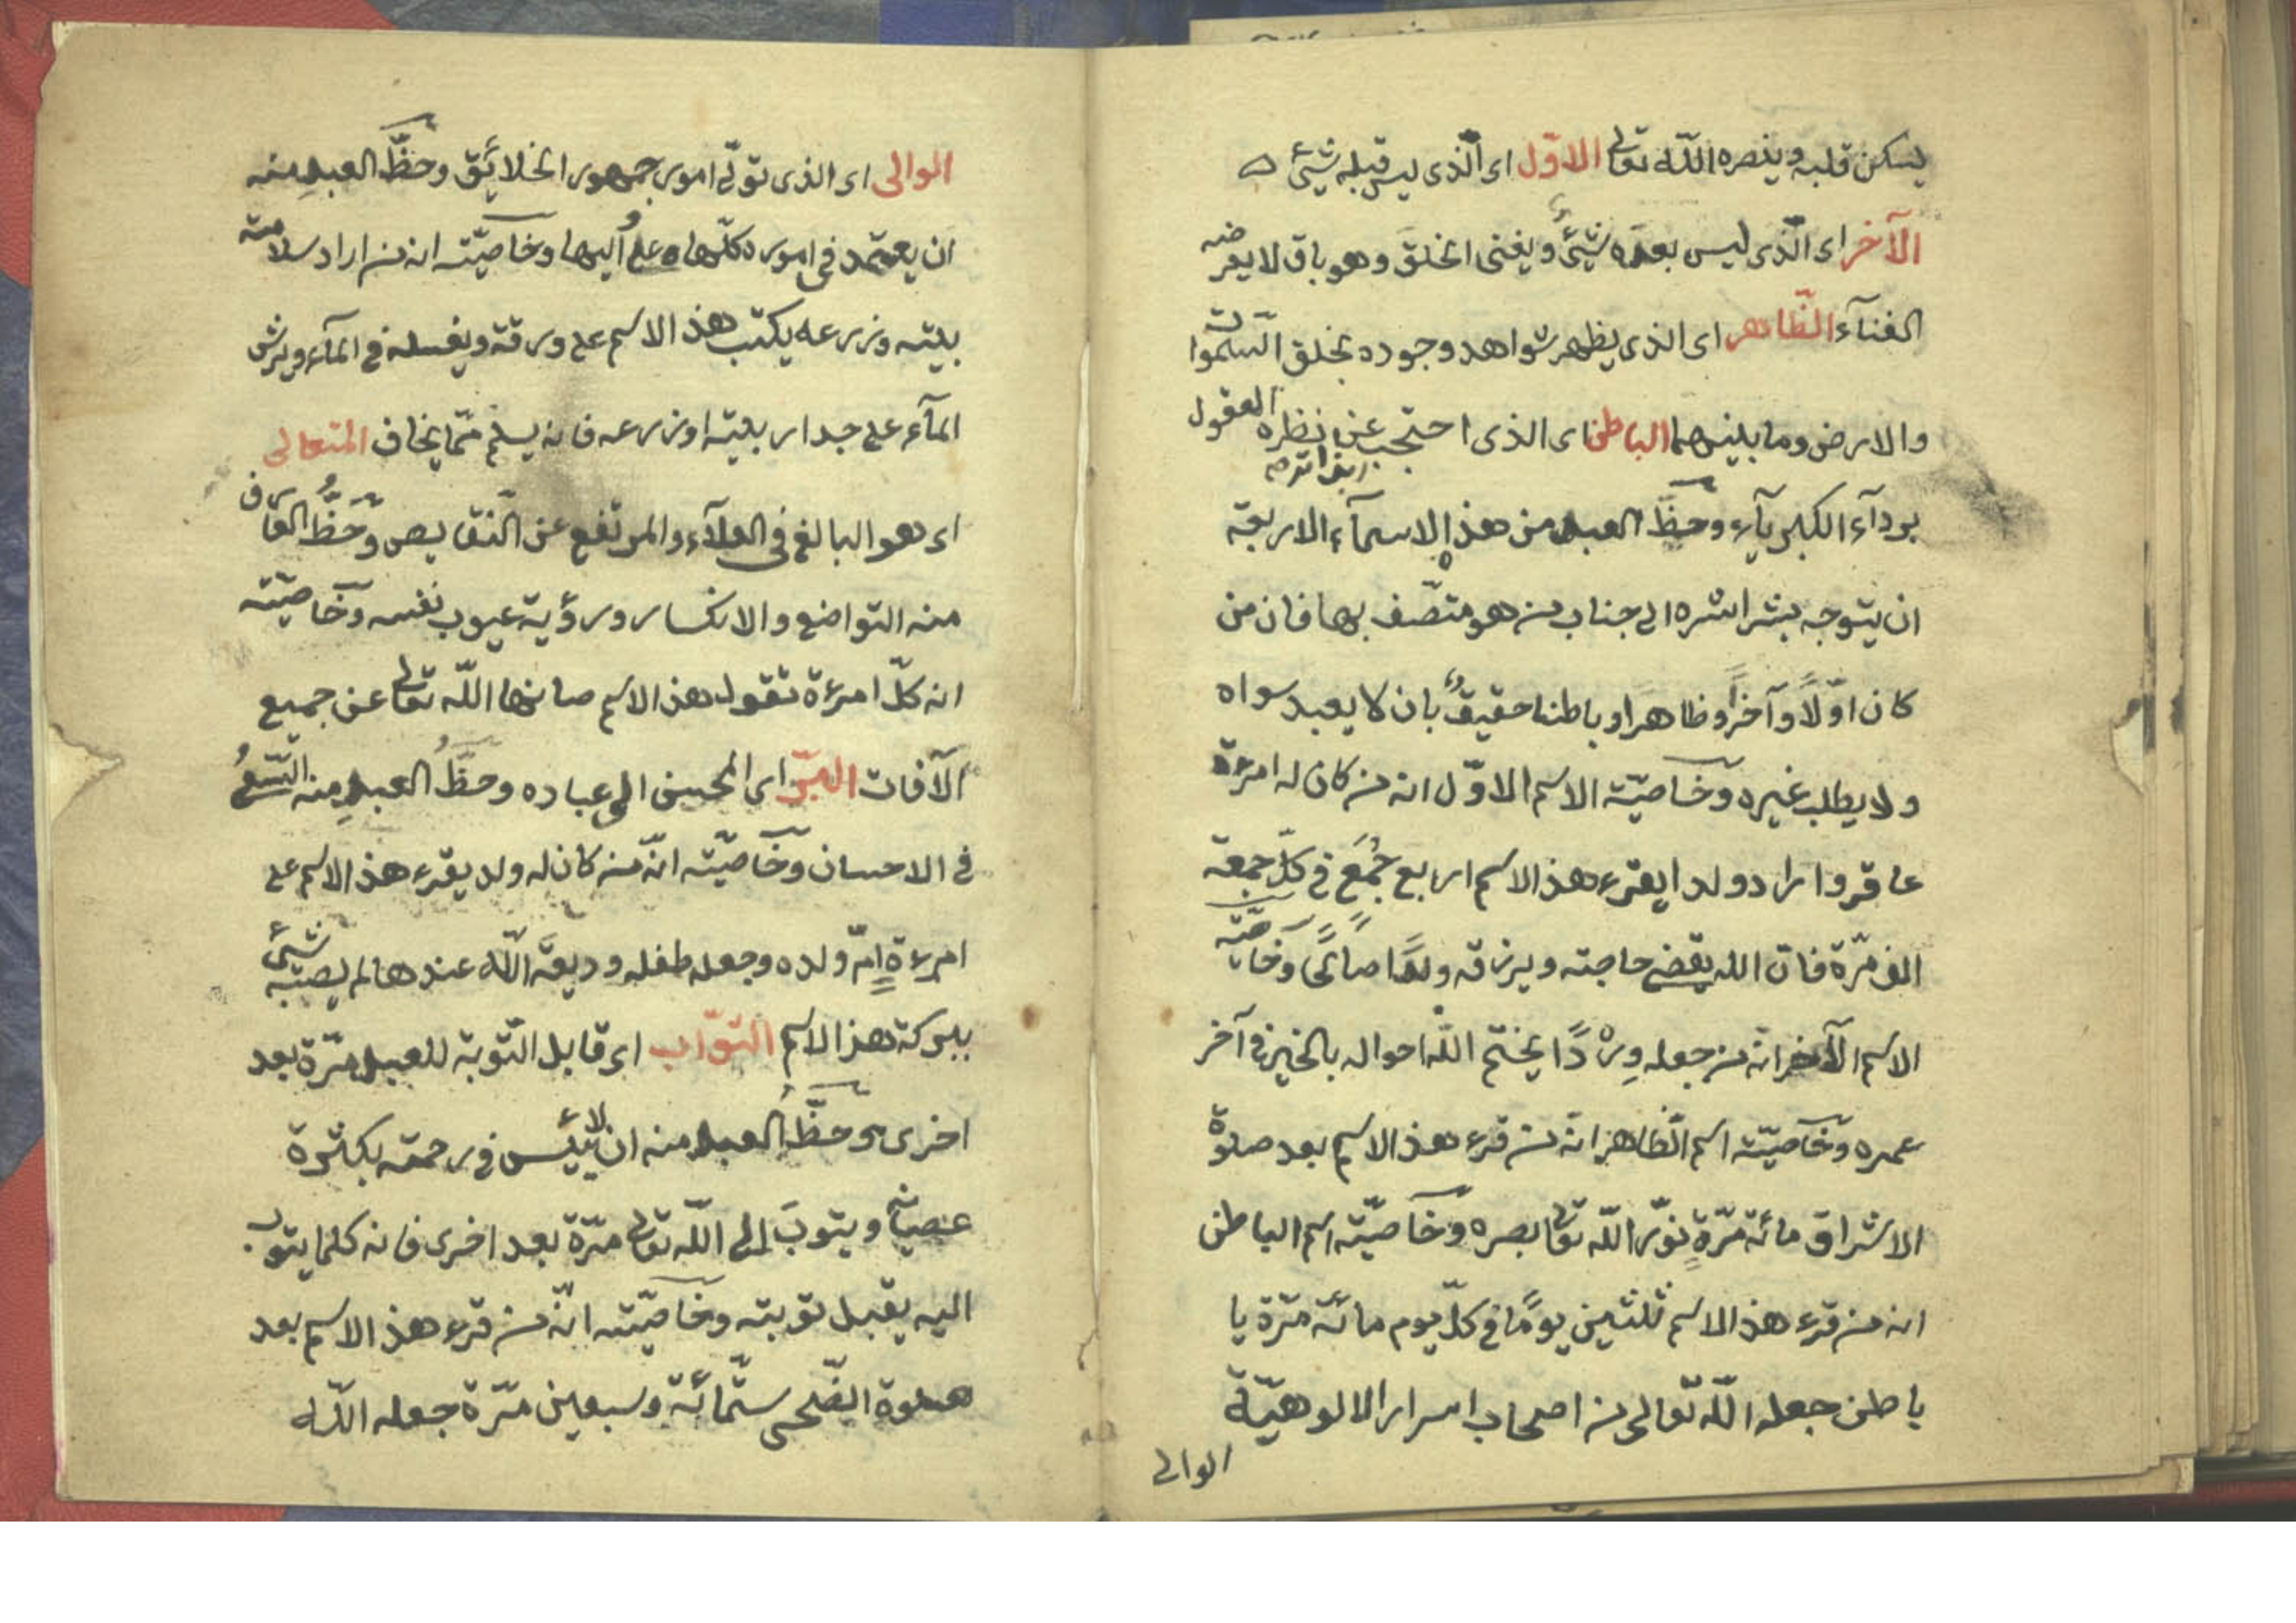 يسكن قلبه وينصره الله تعالى الاوّل اى الّذى ليس قبله شيئ
الآخر اى الّذى ليس بعده شيئ ويفنى الخلق وهو باق لا يعرضه
الفنآء الظّاهر اى الذى يظهر شواهد وجوده بخلق السّموات
والارض وما بينهما الباطن اى الذى احتجب عن نظره العقول
بردآء الكبريآء وحظّ العبد من هذه الاسمآء الاربعة
ان يتوجه بشراشره الى جناب من هو متصّف بها فان من
كان اوّلاً وآخراً وظاهرا وباطنا حقيقٌ بان لا يعبد سواه
ولا يطلب غيره وخاصيّته الاسم الاوّل انه من كان له امرءة
عاقر واراد ولدا يقرء هذا الاسم اربع جُمَع فى كلّ جمعة
الف مّرة فانّ الله يقضى حاجته ويرزقه ولدًا صالحًا وخاصيّته
الاسم الآخر انّه من جعله وِرْدًا يختم اللّه احواله بالخير فى آخر
عمره وخاصيّته اسم الظّاهر انّه من قرء هذا الاسم بعد صلوة
الاشراق مائة مرّةٍ نوّر اللّه تعالى بصره وخاصيّته اسم الباطن
انه من قرء هذا الاسم ثلثين يومًا فى كلّ يوم مائة مرّة يا
باطن جعله اللّه تعالى من اصحاب اسرار الالوهيّة
الوالى
الوالى اى الذى تولّى امور جمهور الخلائق وحظّ العبدِ منه
ان يعتمد فى اموره كلّها وخاصيّته انه من اراد سلامة
بيته وزرعه يكتب هذا الاسم على ورقة ويغسله فى المآء ويرش
المآء على جدار بيته او زرعه فانه يسلم ممّا يخاف المتعالى
اى هو البالغ فى العلآء والمرتفع عن النّقايص وحَظُّ العارف
منه التواضع والانكسار ورؤية عيوب نفسه وخاصيّته
انه كلّ امرءة تقول هذا الاسم صانها اللّه تعالى عن جميع
الآفات البّر اى المحسن الى عباده وحظُّ العبدِ منه السّعىُ
فى الاحسان وخاصيّته انّه من كان له ولد يقرء هذا الاسم على
امرءةٍ امّ ولده وجعله طفله وديعة اللّه عندها لم يصبه شيئ
ببركة هذا الاسم التوّاب اى قابل التّوبة للعبد مرّة بعد
اخرى وحظُّ العبد منه ان لا ييئس فى رحمته بكثرة
عصيانه ويتوبَ الى اللّه تعالى مرّة بعد اخرى فانه كلما يتوب
اليه يقبل توبته وخاصيّته انّه من قرء هذا الاسم بعد
صلوة الضّحى ستّمائة وسبعين مرّة جعله اللّه